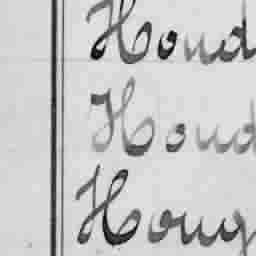 Houd
Houd
Houg